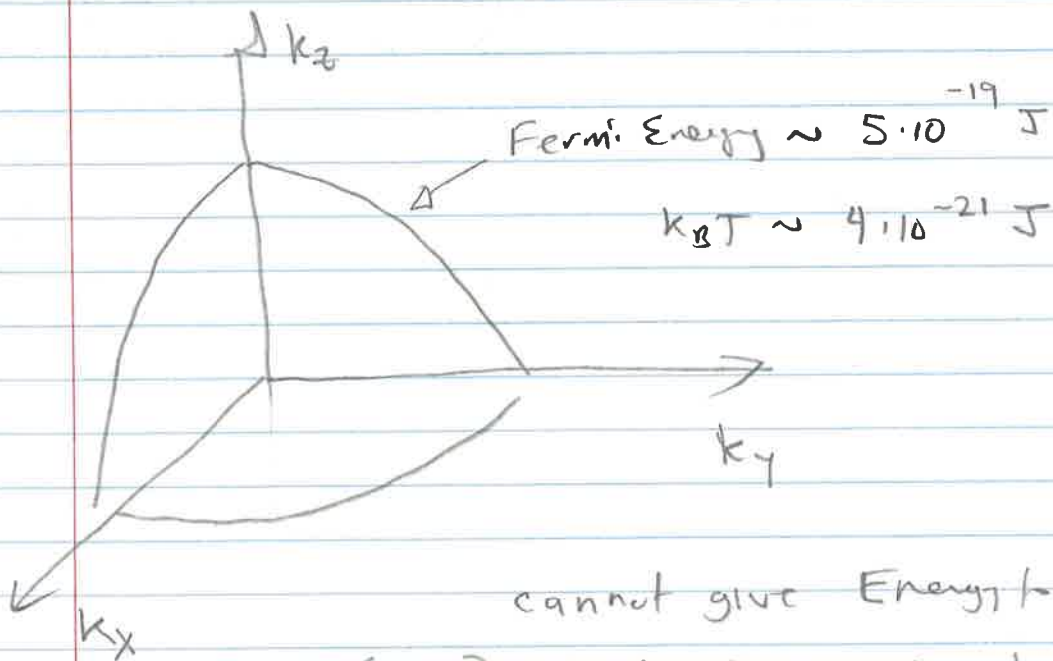 kz
Fermi Energy ~ 5·10^-19 J
kBT ~ 4·10^-21 J
ky
cannot give Energy to
kx